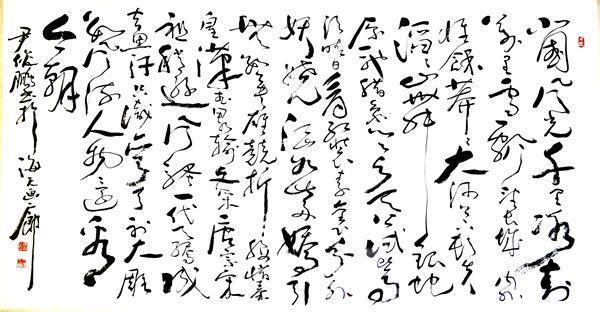 北國風光千里冰封
萬里雪飄望長城內外
惟餘莽莽大河上下頓失
滔滔山舞銀蛇
原馳蠟象欲與天公試比高
須晴日看紅裝素裹分外
妖嬈江山如此多嬌引
無數英雄競折腰惜秦
皇漢武略輸文采唐宗宋
祖稍遜風騷一代天驕成
吉思汗只識彎弓射大雕
數風流人物還看
今朝
尹俊鵬書於海天画廊